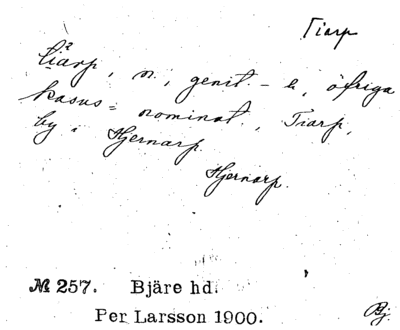 Tiarp
tiarp, n., genit. - s, öfriga
kasus = nominat., Tiarp,
by i Hjernarp.
Hjernarp.
№ 257. Bjäre hd.
Per Larsson 1900.
Bj.